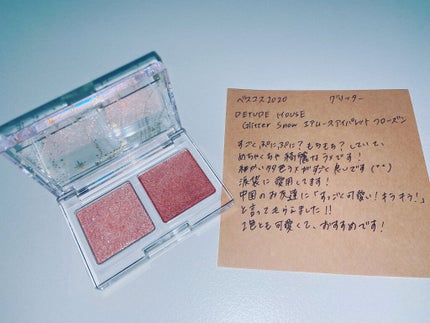 ベスコス2020 グリッター
DETUDE HOUSE
Glitter Snow エアムースアイパレット フローズン
すごく ぷにぷに？もちもち？していて、
めちゃくちゃ綺麗なラメです！
細かい多色ラメがすごく良いです(^^)
涙袋に愛用してます！
中国のお友達に「すっごく可愛い！キラキラ！」
と言ってもらえました！！
2色とも可愛くて、おすすめです！